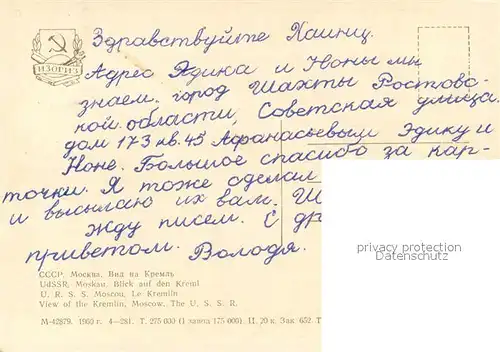 Здравствуйте Хаинц.
Адрес Эдика и Ноны мы
знаем. город Шахты Ростовс-
кой области, Советская улица
дом 173 кв. 45 Афанасьевым Эдику и
Ноне. Большое спасибо за кар-
точки. Я тоже сделал
и высылаю их вам.
жду писем. С др
приветом. Володя.
ИЗОГИЗ
privacy protection
Datenschutz
СССР. Москва. Вид на Кремль
UdSSR, Moskau. Blick auf den Kreml
U. R. S. S. Moscou. Le Kremlin
View of the Kremlin, Moscow. The U. S. S. R.
М-42879. 1960 г. 4—281. Т. 275 000 (I завод 175 000). Ц. 20 к. Зак. 652. Т